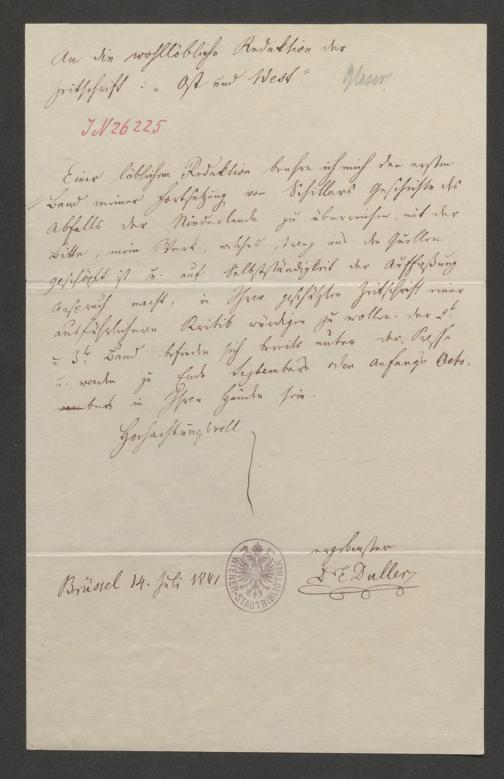 An die wohllöbliche Redaktion der
Zeitschrift: „Ost und West“
Glaser.
IN 26225
Einer löblichen Redaktion beehre ich mich den ersten
Band meiner Fortsetzung von Schillers Geschichte des
Abfalls der Niederlande zu überreichen, mit der
Bitte, mein Werk, welches streng aus den Quellen
geschöpft ist u. auf Selbstständigkeit der Auffaßung
Anspruch macht, in Ihrer geschätzten Zeitschrift einer
ausführlichern Kritik würdigen zu wollen. Der 2t
u 3te Band befinden sich bereits unter der Presse
u. werden zu Ende Septembers oder Anfangs Octo-
bers in Ihren Händen sein.
Hochachtungsvoll
ergebenster
Dr E Duller
Brüssel 14. Juli 1841
WIENER-STADTBIBLIOTHEK